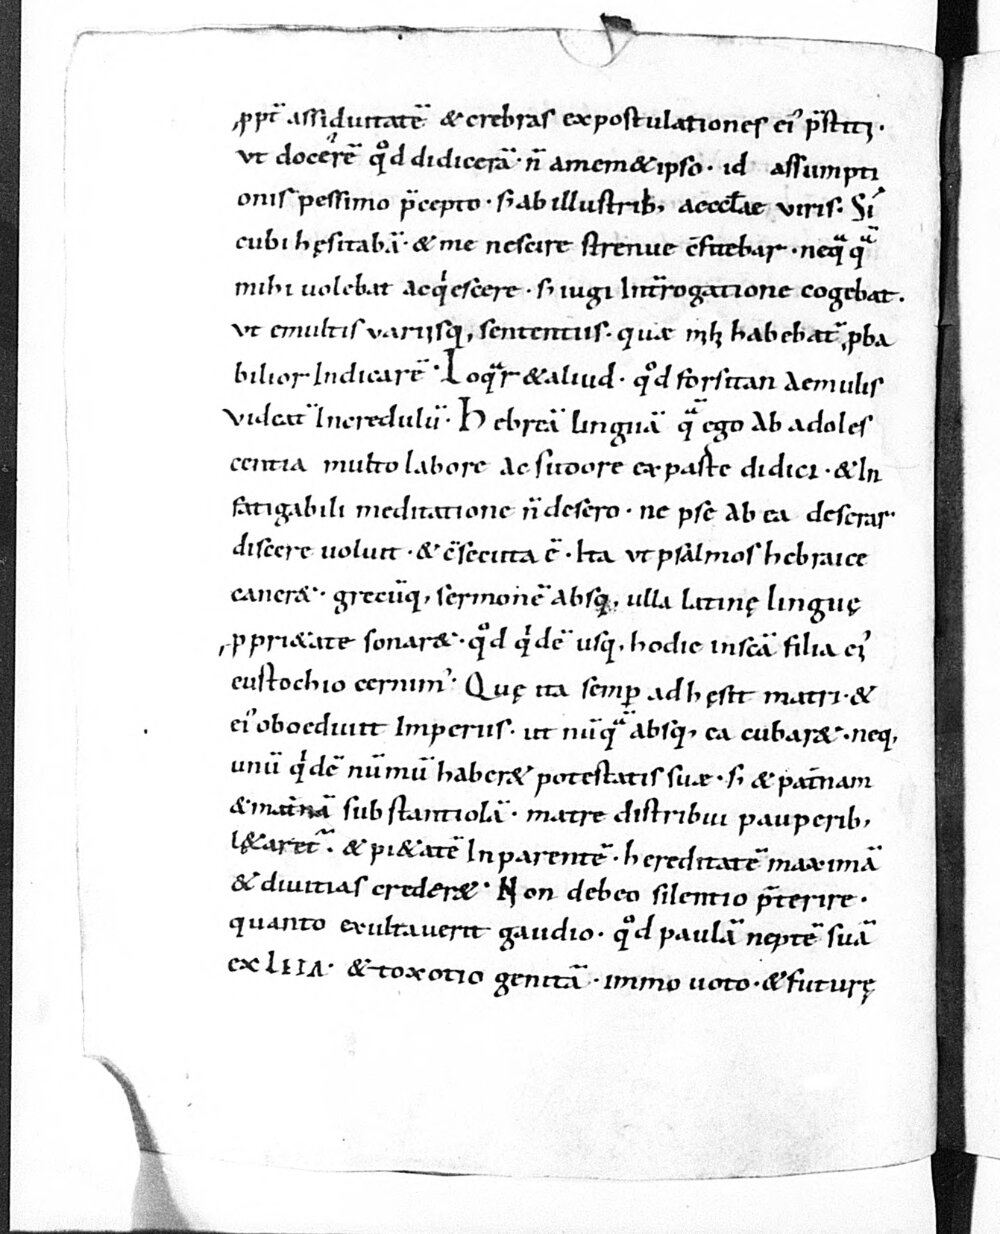 ꝓpt̄ assiduitatē & crebras expostulationes ei᾽ p̄stiti·
vt docerē qd̊ didicerā· n̄ amem&ipso· id assumpti
onis pessimo p̄cepto· s; ab illustrib; aeccłae viris. Si
cubi hęsitabā· & me nescire strenue c̄fitebar· neq̄quā
mihi uolebat acq'escere· s; iugi Int̄rogatione cogebat.
vt emultis varijsq; sententiis· quæ ṃḥ habebat̄ ꝓba
bilior Indicarē· Loq̄r & aliud· qd̊ forsitan aemulis
videat̄ Incredulū· Hebreā linguā qu̅a ego ab adoles
centia multo labore ac sudore ex paste didici· & In
fatigabili meditatione n̄ desero· ne pse ab ea deserar
discere uoluit· & c̄secuta ē· Ita vt psalmos hebraice
caner&· grecūq; sermonē absq; ulla latinę linguę
ꝓpri&ate sonar&· qd̊ q'dē usq; hodie inscā filia ei᾽
eustochio cernim᾽· Quę ita semp̱ adhęsit matri· &
ei᾽ oboediuit Imperiis· ut nūq̄uā absq; ea cubar&· neq;
unū q'dē nūmū haber& potestatis suæ· s; & pat̄nam
& mat̄nā substantiolā· matre distribui pauperib;
l&aret̄· & pi&atē In parentē· hereditatē maximā
& diuitias creder&· Non debeo silentio p̄terire·
quanto exultauerit gaudio· qd̊ paulā neptē suā
ex LIIA· & toxotio genitā· immo uoto· & futurę